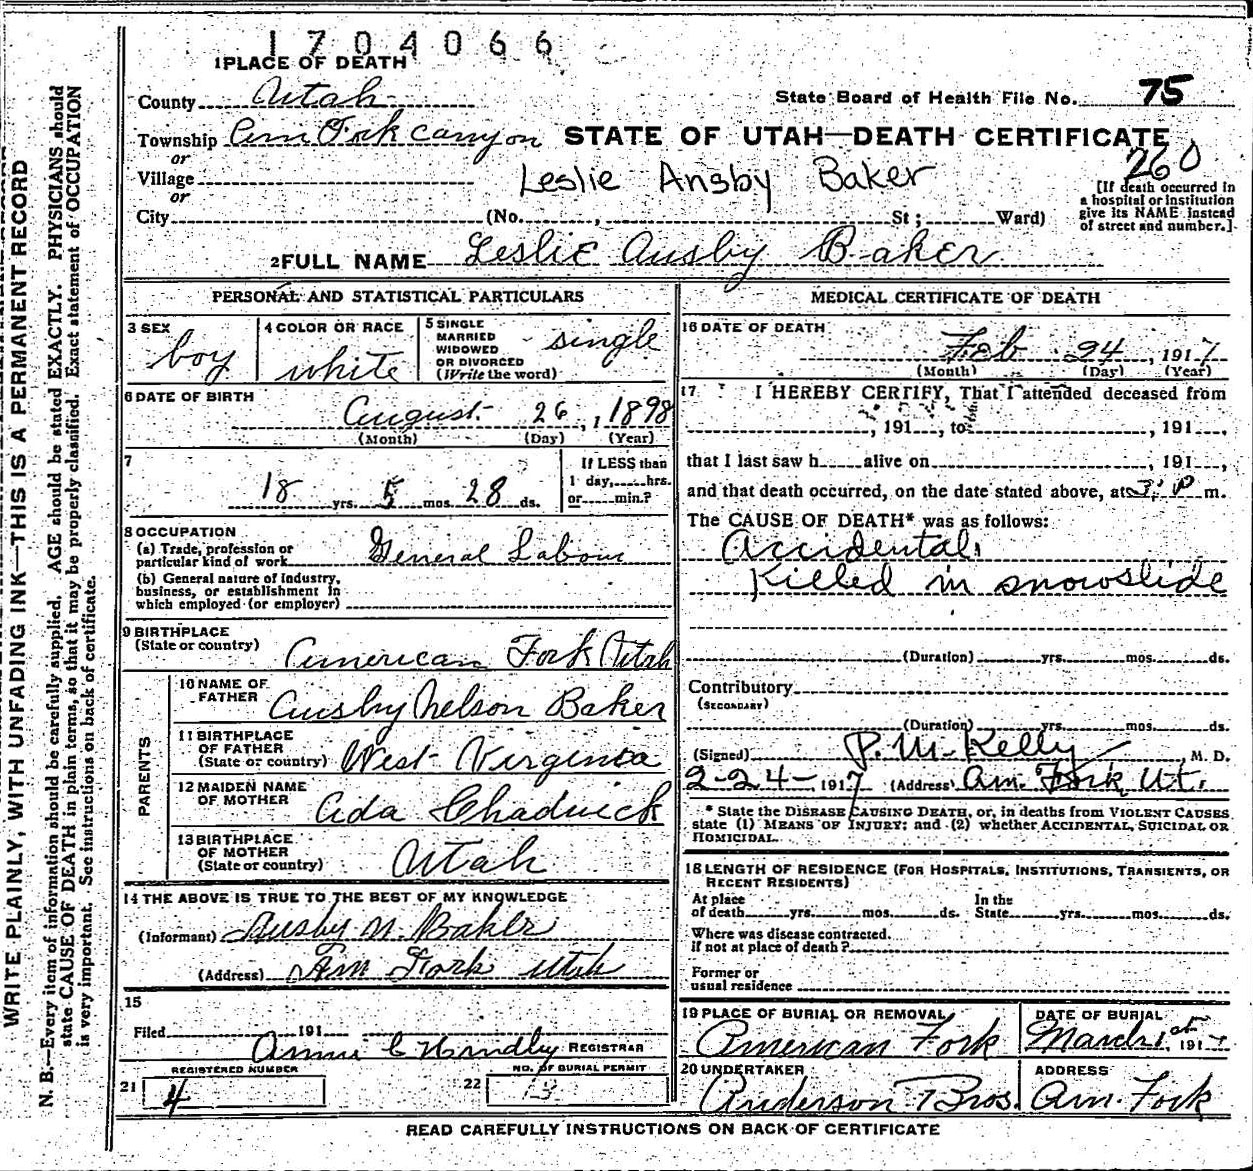 1704066
1PLACE OF DEATH
County Utah
State Board of Health File No. 75
Township Am Fork Canyon STATE OF UTAH—DEATH CERTIFICATE
or
260
Village
Leslie Ansby Baker
[If death occurred in
a hospital or institution
give its NAME instead
of street and number.]
or
City (No. , St; Ward)
2FULL NAME Leslie Ausby Baker
PERSONAL AND STATISTICAL PARTICULARS
3 SEX
boy
4 COLOR OR RACE
white
5 SINGLE
MARRIED
WIDOWED
OR DIVORCED
(Write the word)
single
6 DATE OF BIRTH
August 26, 1898
(Month) (Day) (Year)
7
18 yrs. 5 mos. 28 ds.
If LESS than
1 day, hrs.
or min.?
8 OCCUPATION
(a) Trade, profession or
particular kind of work General Labour
(b) General nature of industry,
business, or establishment in
which employed (or employer)
9 BIRTHPLACE
(State or country) American Fork Utah
PARENTS
10 NAME OF
FATHER Ausby Nelson Baker
11 BIRTHPLACE
OF FATHER
(State or country) West Virginia
12 MAIDEN NAME
OF MOTHER Ada Chadwick
13 BIRTHPLACE
OF MOTHER
(State or country) Utah
14 THE ABOVE IS TRUE TO THE BEST OF MY KNOWLEDGE
(Informant) Ausby N. Baker
(Address) Am Fork Utah
15
Filed 191
REGISTRAR
REGISTERED NUMBER
21 4
NO. OF BURIAL PERMIT
22 13
MEDICAL CERTIFICATE OF DEATH
16 DATE OF DEATH
Feb 24, 1917
(Month) (Day) (Year)
17 I HEREBY CERTIFY, That I attended deceased from
, 191 , to , 191 ,
that I last saw h alive on , 191 ,
and that death occurred, on the date stated above, at 3 P m.
The CAUSE OF DEATH* was as follows:
Accidental
Killed in snowslide
(Duration) yrs. mos. ds.
Contributory
(SECONDARY)
(Duration) yrs. mos. ds.
(Signed) P. M. Kelly M. D.
2-24-1917 (Address) Am. Fork Ut.
* State the DISEASE CAUSING DEATH, or, in deaths from VIOLENT CAUSES
state (1) MEANS OF INJURY; and (2) whether ACCIDENTAL, SUICIDAL OR
HOMICIDAL.
18 LENGTH OF RESIDENCE (FOR HOSPITALS, INSTITUTIONS, TRANSIENTS, OR
RECENT RESIDENTS)
At place
of death yrs. mos. ds.
In the
State yrs. mos. ds.
Where was disease contracted,
if not at place of death?
Former or
usual residence
19 PLACE OF BURIAL OR REMOVAL
American Fork
DATE OF BURIAL
March 1st 1917
20 UNDERTAKER
Anderson Bros.
ADDRESS
Am. Fork
READ CAREFULLY INSTRUCTIONS ON BACK OF CERTIFICATE
WRITE PLAINLY, WITH UNFADING INK—THIS IS A PERMANENT RECORD
N. B.—Every item of information should be carefully supplied. AGE should be stated EXACTLY. PHYSICIANS should
state CAUSE OF DEATH in plain terms, so that it may be properly classified. Exact statement of OCCUPATION
is very important. See instructions on back of certificate.